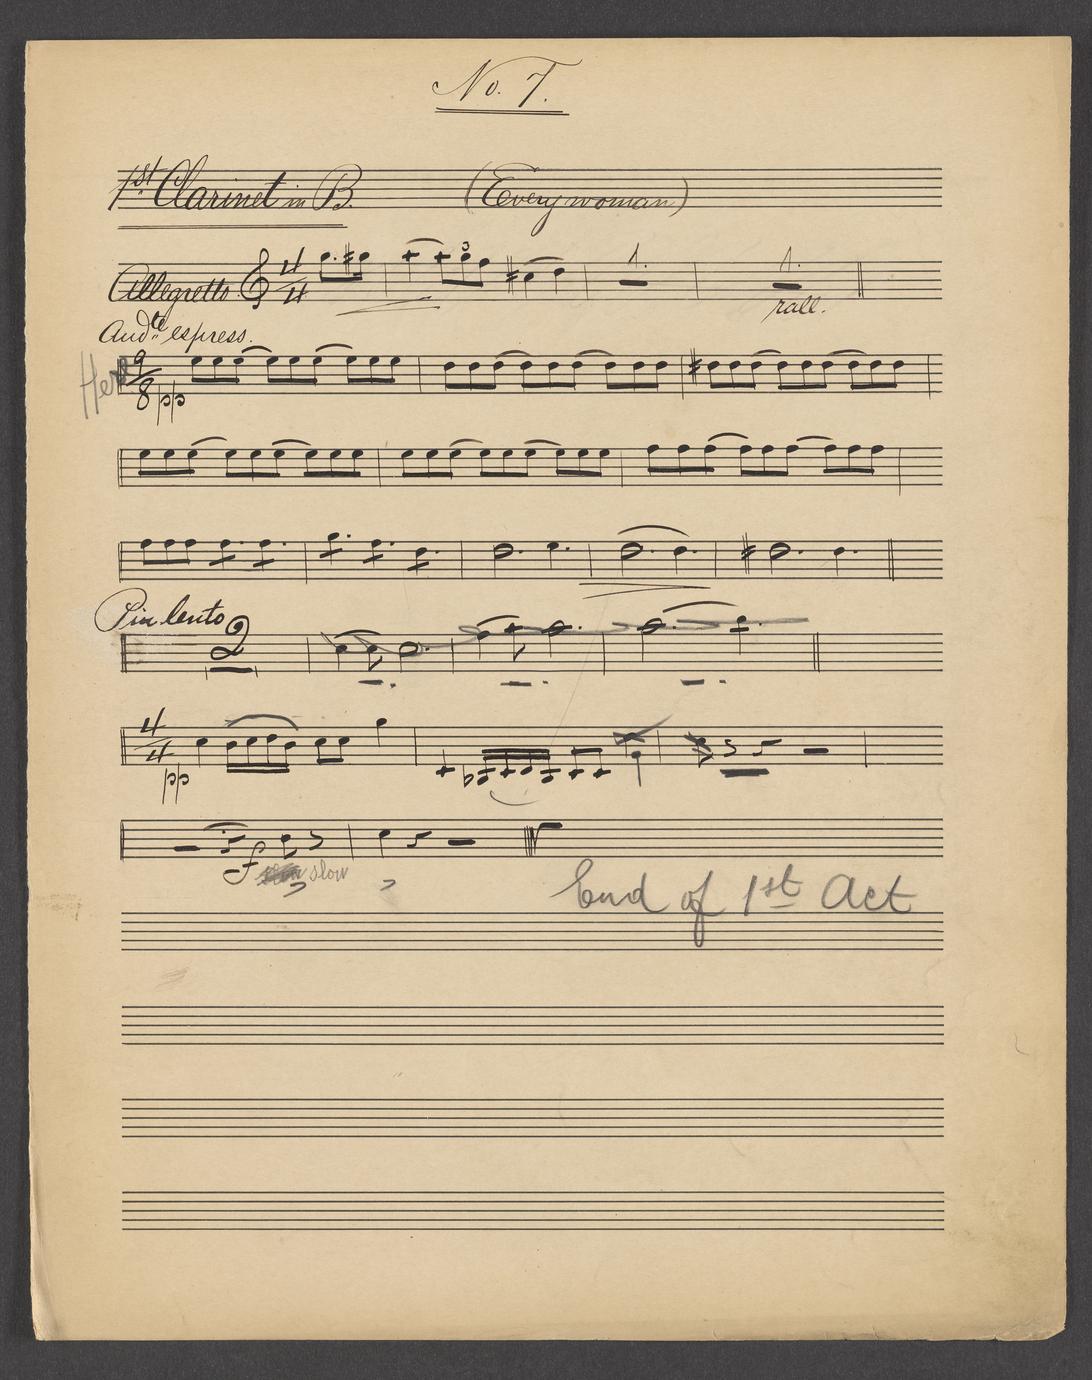 No. 7.
1st Clarinet in B. (Everywoman)
Allegretto. 4/4 3 1. 1.
rall.
And.te espress.
Here 9/8 pp
Piu lento 2
4/4 pp
f slow
End of 1st Act